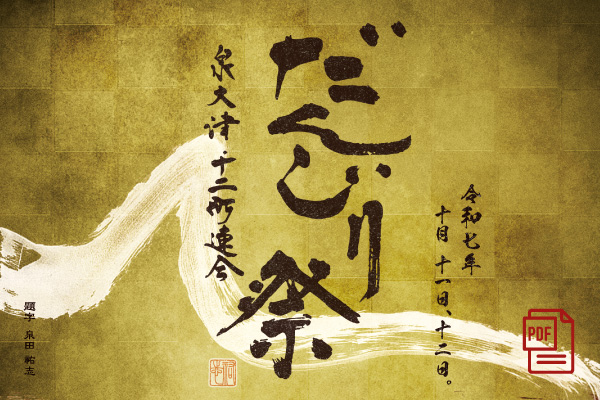 令和七年
十月十一日、十二日。
だんじり祭
泉大津十二町連合
題字 泉田祐志
PDF